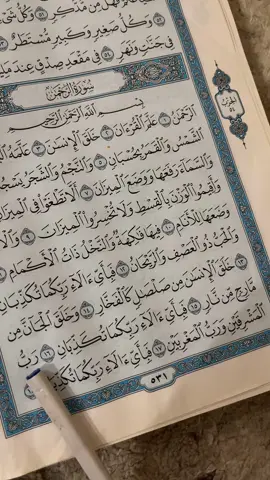 فَهَلْ مِن مُّدَّكِرٍ ۝٥١ وَكُلُّ شَىْءٍ
وَكُلُّ صَغِيرٍ وَكَبِيرٍ مُّسْتَطَرٌ ۝٥٣
فِى جَنَّٰتٍ وَنَهَرٍ ۝٥٤ فِى مَقْعَدِ صِدْقٍ عِندَ مَلِيكٍ
سُورَةُ الرَّحْمَٰن
بِسْمِ ٱللَّهِ ٱلرَّحْمَٰنِ ٱلرَّحِيمِ
ٱلرَّحْمَٰنُ ۝١ عَلَّمَ ٱلْقُرْءَانَ ۝٢ خَلَقَ ٱلْإِنسَٰنَ ۝٣ عَلَّمَهُ
ٱلشَّمْسُ وَٱلْقَمَرُ بِحُسْبَانٍ ۝٥ وَٱلنَّجْمُ وَٱلشَّجَرُ يَسْجُدَانِ
وَٱلسَّمَآءَ رَفَعَهَا وَوَضَعَ ٱلْمِيزَانَ ۝٧ أَلَّا تَطْغَوْا۟ فِى ٱلْمِيزَانِ
وَأَقِيمُوا۟ ٱلْوَزْنَ بِٱلْقِسْطِ وَلَا تُخْسِرُوا۟ ٱلْمِيزَانَ ۝٩ وَٱلْأَرْضَ
وَضَعَهَا لِلْأَنَامِ ۝١٠ فِيهَا فَٰكِهَةٌ وَٱلنَّخْلُ ذَاتُ ٱلْأَكْمَامِ ۝١١
وَٱلْحَبُّ ذُو ٱلْعَصْفِ وَٱلرَّيْحَانُ ۝١٢ فَبِأَىِّ ءَالَآءِ رَبِّكُمَا تُكَذِّبَانِ
۝١٣ خَلَقَ ٱلْإِنسَٰنَ مِن صَلْصَٰلٍ كَٱلْفَخَّارِ ۝١٤ وَخَلَقَ ٱلْجَآنَّ مِن
مَّارِجٍ مِّن نَّارٍ ۝١٥ فَبِأَىِّ ءَالَآءِ رَبِّكُمَا تُكَذِّبَانِ ۝١٦ رَبُّ
ٱلْمَشْرِقَيْنِ وَرَبُّ ٱلْمَغْرِبَيْنِ ۝١٧ فَبِأَىِّ ءَالَآءِ رَبِّكُمَا تُكَذِّبَانِ ۝١٨
٥٣١